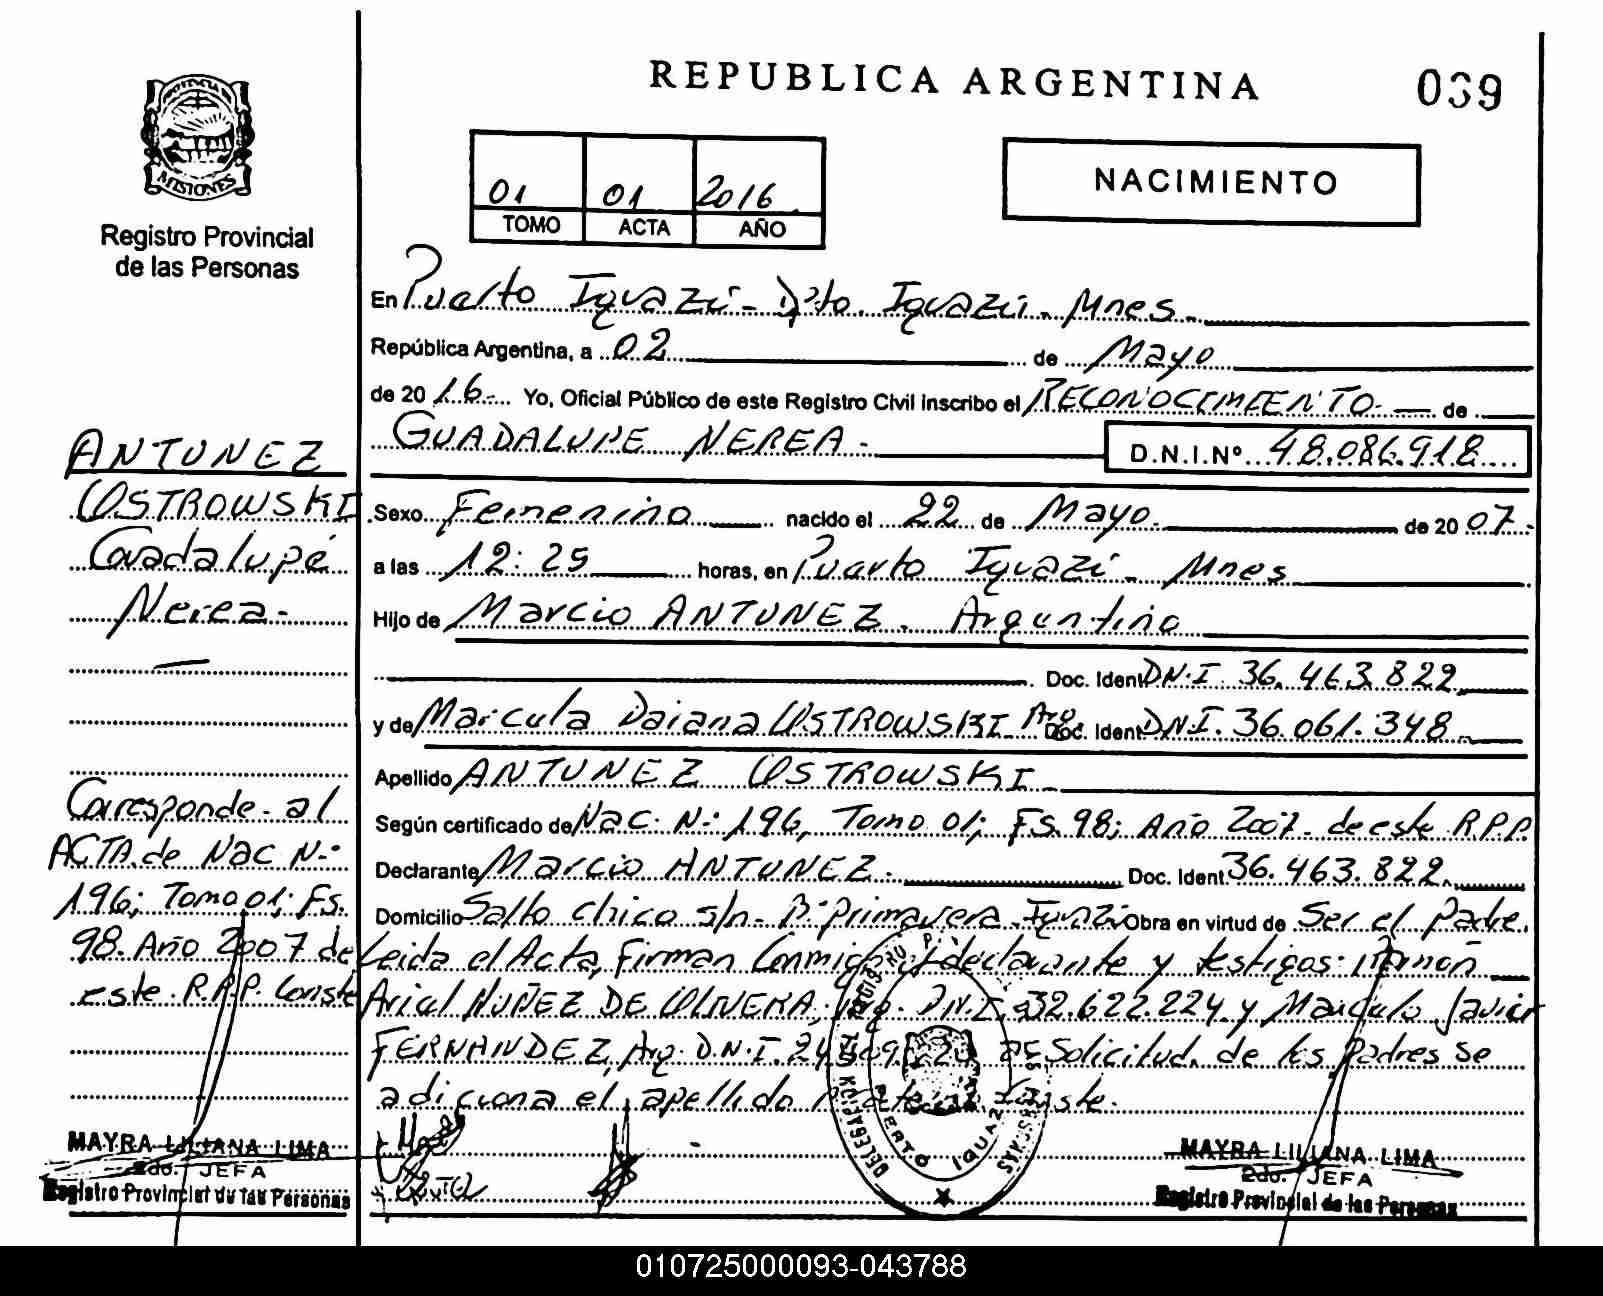 REPUBLICA ARGENTINA
039
MISIONES
Registro Provincial
de las Personas
01 01 2016
TOMO ACTA AÑO
NACIMIENTO
En Puerto Iguazú - Dpto. Iguazú - Mnes -
República Argentina, a 02 de Mayo
de 2016.- Yo, Oficial Público de este Registro Civil inscribo el RECONOCIMIENTO - de
GUADALUPE NEREA.- D.N.I.Nº 48.086.918
Sexo Femenino nacido el 22 de Mayo. de 2007.-
a las 12:25 horas, en Puerto Iguazú - Mnes
Hijo de Marcio ANTUNEZ. Argentino
Doc. Ident D.N.I. 36.463.822
y de Marcela Daiana OSTROWSKI Arg. Doc. Ident D.N.I. 36.061.348
Apellido ANTUNEZ OSTROWSKI
Según certificado de Nac. N.: 196, Tomo 01; FS.98; Año 2007. de este R.P.P.
Declarante Marcio ANTUNEZ. Doc. Ident. 36.463.822.
Domicilio Salto Chico s/n - Bº Primavera - Iguazú Obra en virtud de Ser el Padre.
Leida el Acta, Firman Conmigo el declarante y testigos:
Ariel NUÑEZ DE OLIVERA, Arg. D.N.I. 32.622.224. y Marcelo Javier
FERNANDEZ, Arg. D.N.I. Solicitud de los Padres se
adiciona el apellido Conste.
ANTUNEZ
OSTROWSKI
Guadalupé
Nerea-
Corresponde - al
ACTA de Nac N-:
196; Tomo 01; Fs.
98. Año 2007 de
este R.P.P. Conste
MAYRA LILIANA LIMA
2do. JEFA
Registro Provincial de las Personas
PUERTO IGUAZU
MAYRA LILIANA LIMA
2do. JEFA
Registro Provincial de las Personas
010725000093-043788